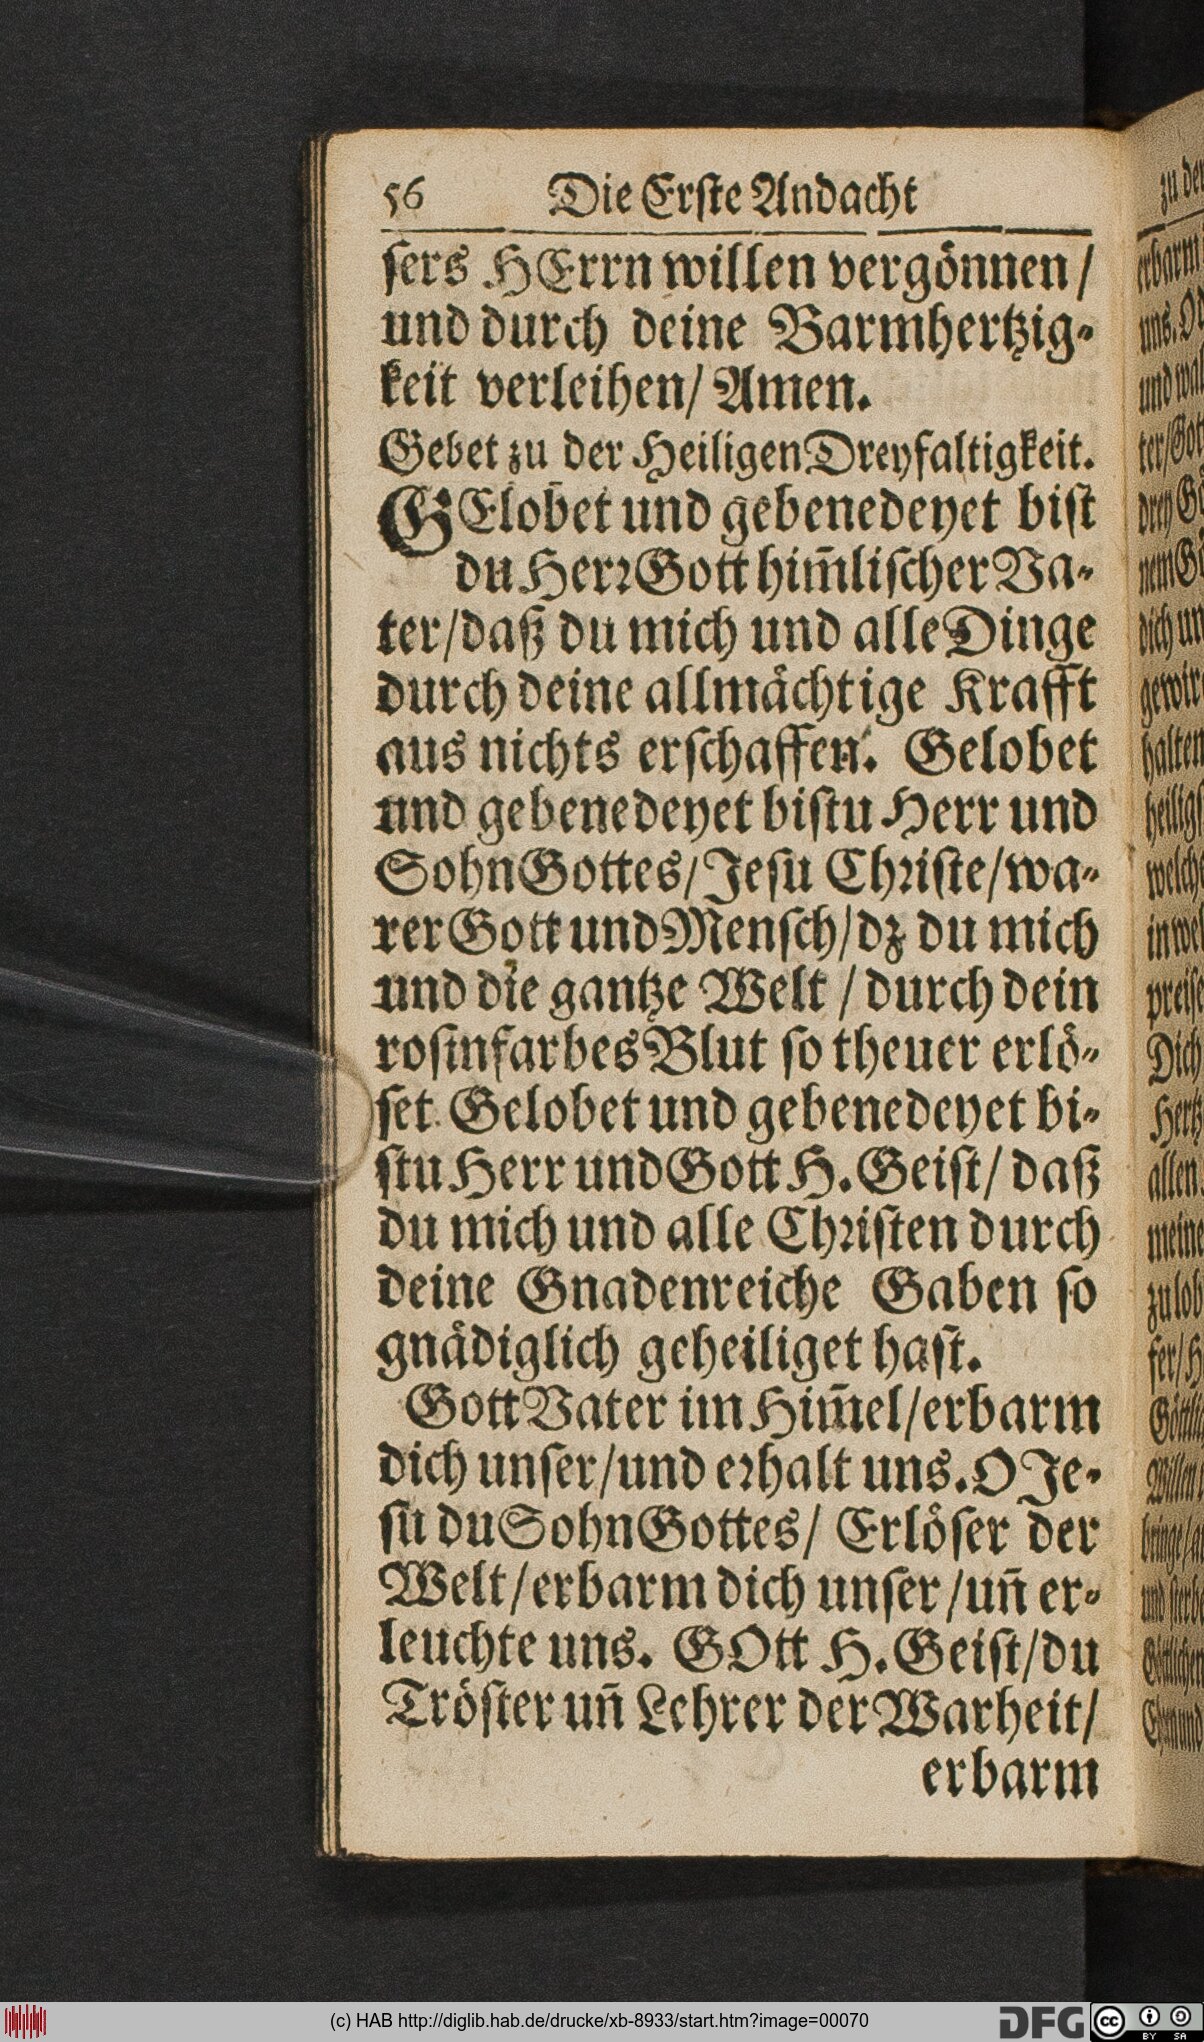 56 Die Erste Andacht
sers HErrn willen vergönnen/
und durch deine Barmhertzig-
keit verleihen/ Amen.
Gebet zu der Heiligen Dreyfaltigkeit.
GElobet und gebenedeyet bist
du Herr Gott him̃lischer Va-
ter/daß du mich und alle Dinge
durch deine allmächtige Krafft
aus nichts erschaffen. Gelobet
und gebenedeyet bistu Herr und
Sohn Gottes/Jesu Christe/wa-
rer Gott und Mensch/dz du mich
und die gantze Welt / durch dein
rosinfarbes Blut so theuer erlö-
set. Gelobet und gebenedeyet bi-
stu Herr und Gott H. Geist/ daß
du mich und alle Christen durch
deine Gnadenreiche Gaben so
gnädiglich geheiliget hast.
Gott Vater im Him̃el/erbarm
dich unser/und erhalt uns. O Je-
su du Sohn Gottes/ Erlöser der
Welt/erbarm dich unser/uñ er-
leuchte uns. GOtt H. Geist/du
Tröster uñ Lehrer der Warheit/
erbarm
zu
erbarm
uns.
und
ter/
drey
dich
heilig
welche
preise
Dich
Hertz
allen
meine
zu lob
(c) HAB http://diglib.hab.de/drucke/xb-8933/start.htm?image=00070
DFG
CC BY SA